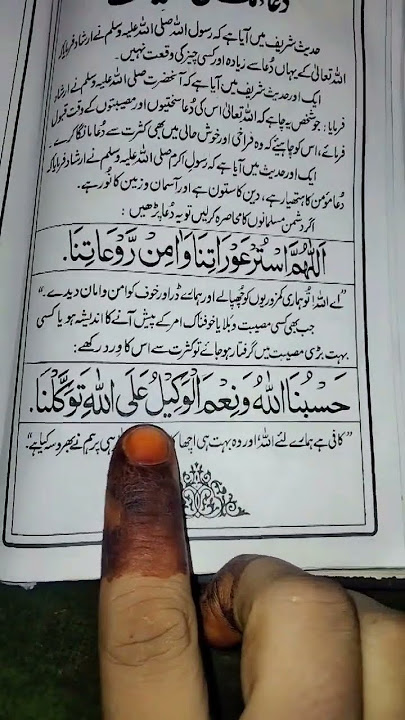 حدیث شریف میں آیا ہے کہ رسول اللہ صلی اللہ علیہ وسلم نے ارشاد فرمایا کہ
اللہ تعالیٰ کے یہاں دُعا سے زیادہ اور کسی چیز کی وقعت نہیں۔
ایک اور حدیث شریف میں آیا ہے کہ آنحضرت صلی اللہ علیہ وسلم نے ارشاد
فرمایا: جو شخص یہ چاہے کہ اللہ تعالیٰ اس کی دُعا سختیوں اور مصیبتوں کے وقت قبول
فرمائے، اس کو چاہیئے کہ وہ فراخی اور خوش حالی میں بھی کثرت سے دُعا مانگا کرے۔
ایک اور حدیث میں آیا ہے کہ رسولِ اکرم صلی اللہ علیہ وسلم نے ارشاد فرمایا کہ
دُعا مؤمن کا ہتھیار ہے، دین کا ستون ہے اور آسمان و زمین کا نُور ہے۔
اگر دشمن مسلمانوں کا محاصرہ کرلیں تو یہ دُعا پڑھیں:
اَللّٰهُمَّ اسْتُرْ عَوْرَاتِنَا وَاٰمِنْ رَّوْعَاتِنَا.
”اے اللہ! تُو ہماری کمزوریوں کو چُھپالے اور ہمارے ڈر اور خوف کو امن و امان دیدے۔“
جب بھی کسی مصیبت و بلا یا خوفناک امر کے پیش آنے کا اندیشہ ہو یا کسی
بہت بڑی مصیبت میں گرفتار ہو جائے تو کثرت سے اس کا وِرد رکھے:
حَسْبُنَا اللّٰهُ وَنِعْمَ الْوَكِيْلُ عَلَى اللّٰهِ تَوَكَّلْنَا.
”کافی ہے ہمارے لئے اللہ! اور وہ بہت ہی اچھا ہی پر ہم نے بھروسہ کیا ہے۔“